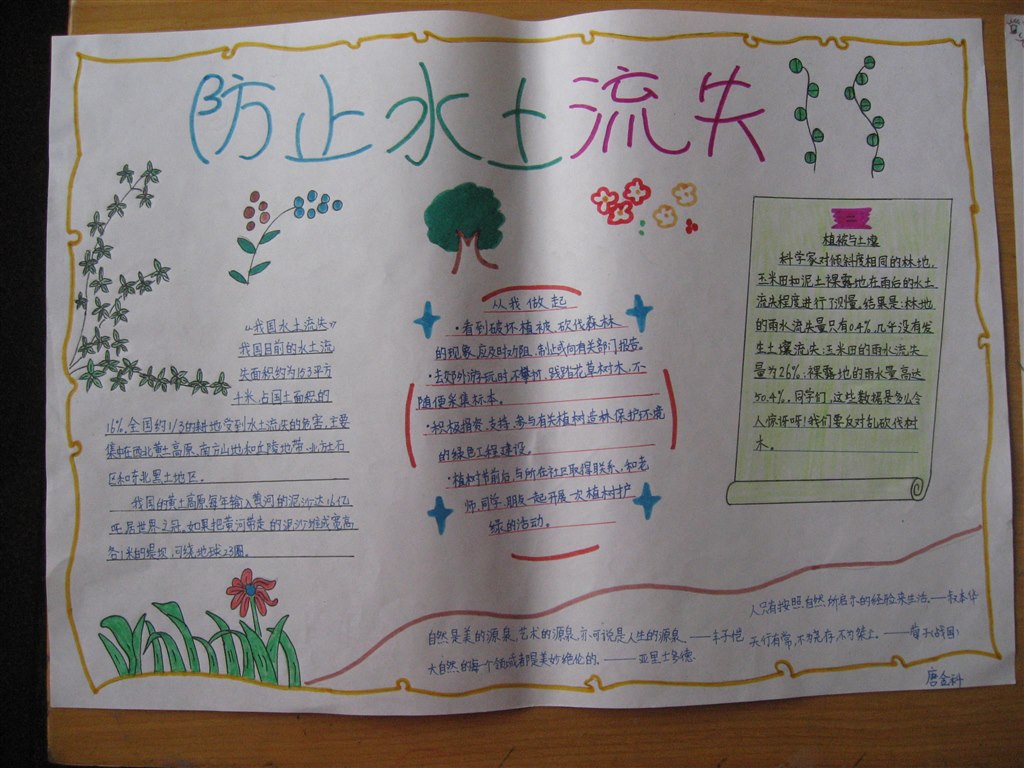 防止水土流失
《我国水土流失》
我国目前的水土流
失面积约为153平方
千米,占国土面积的
16%,全国约1/3的耕地受到水土流失的危害,主要
集中在西北黄土高原、南方山地和丘陵地带、北方土石
区和东北黑土地区。
我国的黄土高原每年输入黄河的泥沙达16亿
吨,居世界之冠。如果把黄河带走的泥沙堆成宽高
各1米的堤坝,可绕地球23圈。
从我做起
·看到破坏植被、砍伐森林
的现象,应及时劝阻、制止或向有关部门报告。
·去郊外游玩时不攀折、践踏花草树木,不
随便采集标本。
·积极捐资、支持、参与有关植树造林、保护环境
的绿色工程建设。
·植树节前后,与所在社区取得联系,和老
师、同学、朋友一起开展一次植树护
绿的活动。
植被与土壤
科学家对倾斜度相同的林地、
玉米田和泥土裸露地在雨后的水土
流失程度进行了测量,结果是:林地
的雨水流失量只有0.4%,几乎没有发
生土壤流失;玉米田的雨水流失
量为26%;裸露地的雨水量高达
50.4%。同学们,这些数据是多么令
人惊讶呀!我们要反对乱砍伐树
木。
人只有按照自然所启示的经验来生活。——叔本华
自然是美的源泉,艺术的源泉,亦可说是人生的源泉。——丰子恺
天行有常,不为尧存,不为桀亡。——荀子(战国)
大自然的每个领域都是美妙绝伦的。——亚里士多德
唐金科